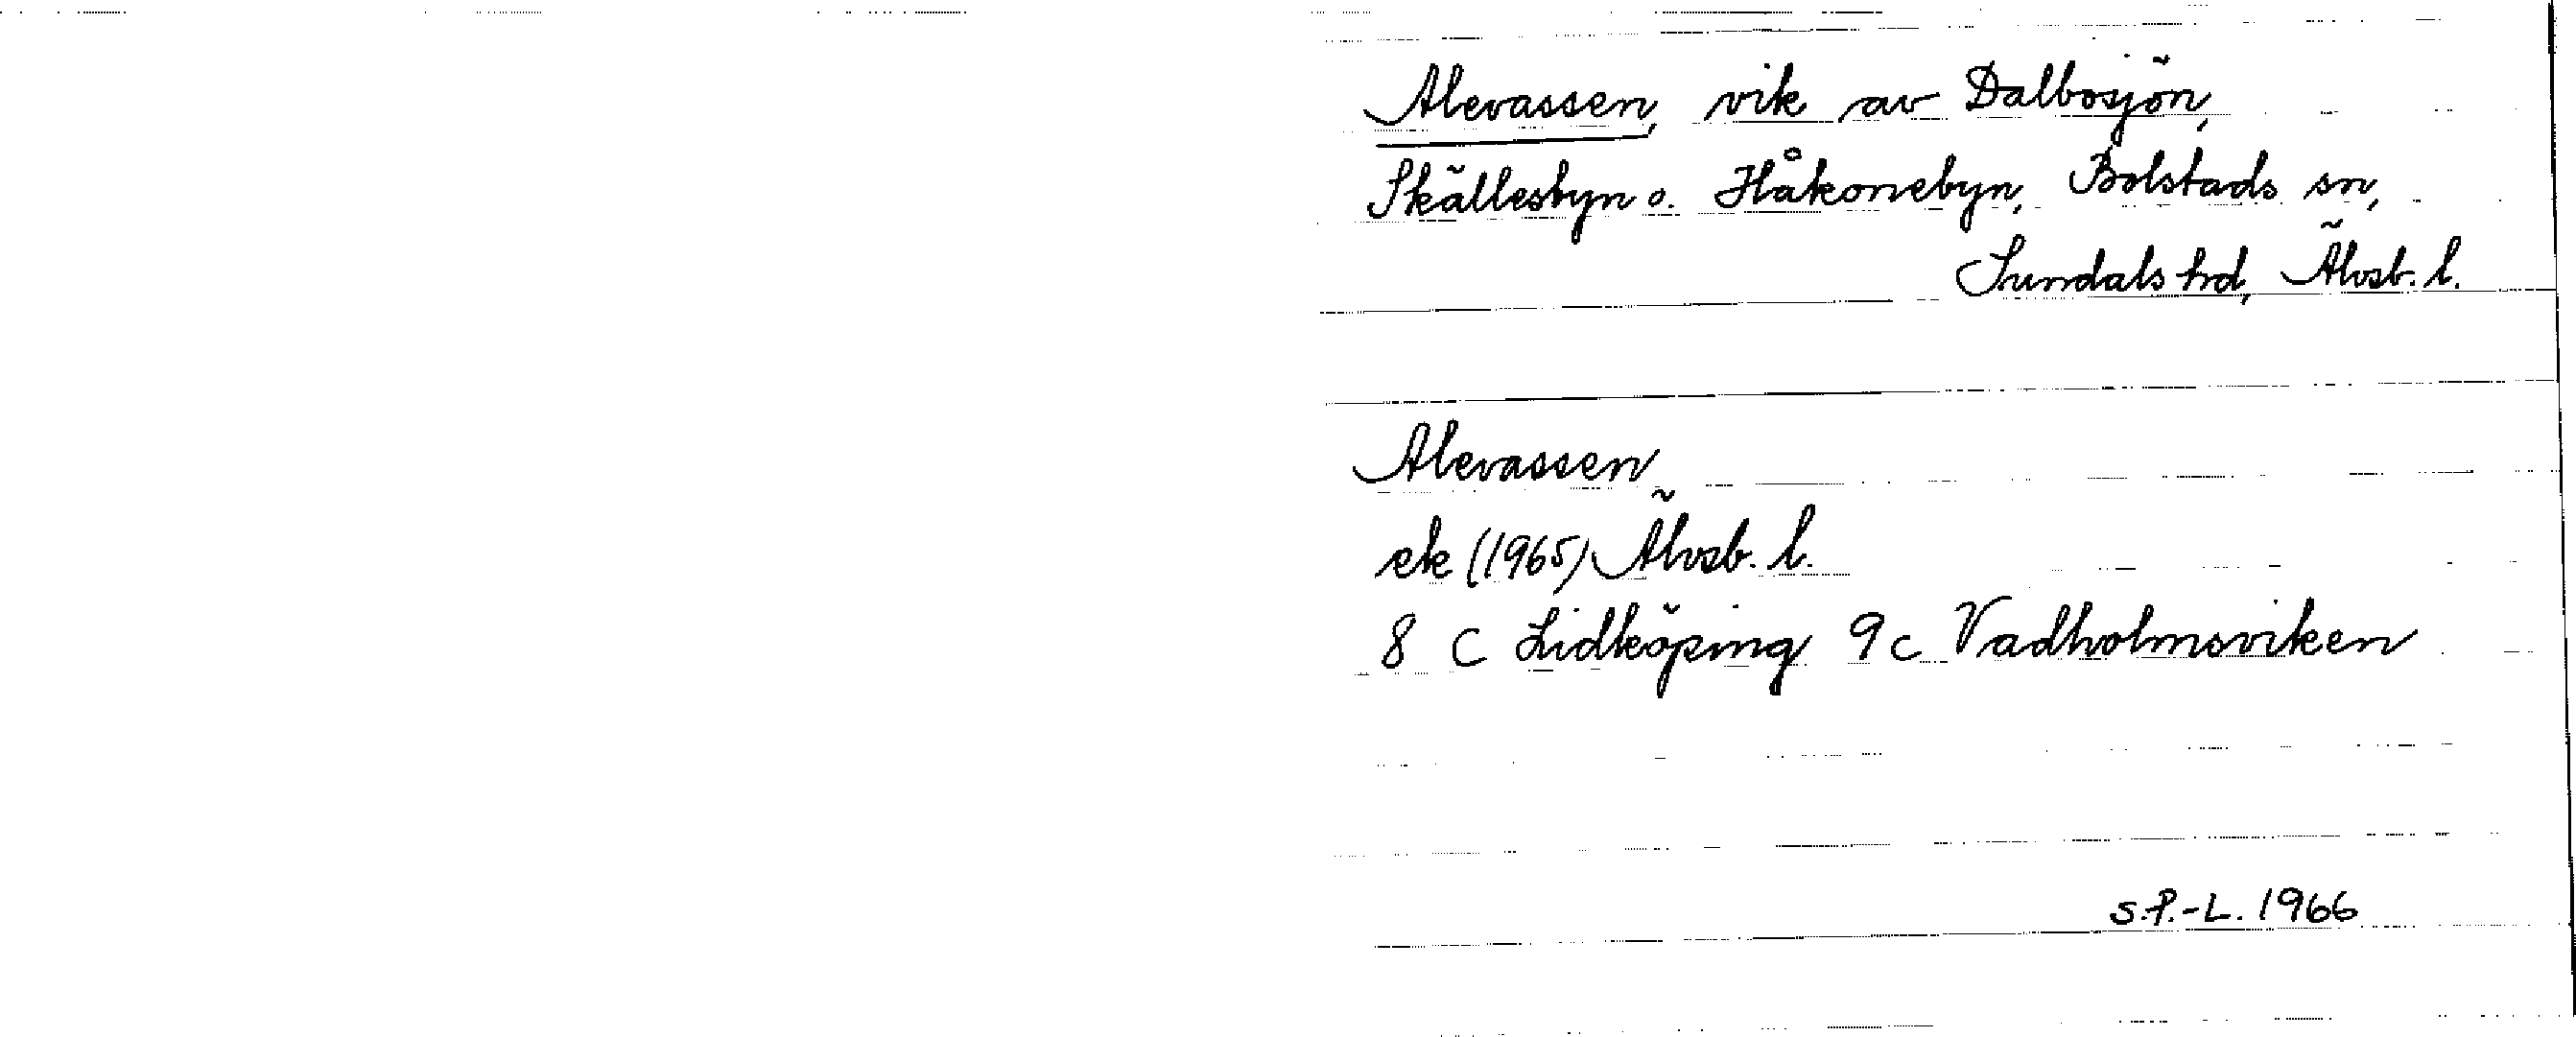 Alevassen, vik av Dalbosjön,
Skällesbyn o. Håkonebyn, Bolstads sn,
Sundals hd, Älvsb. l.
Alevassen
ek (1965) Älvsb. l.
8 C Lidköping 9c Vadholmsviken
S.P.-L. 1966